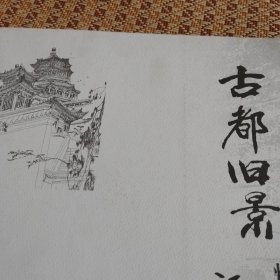 古都旧景